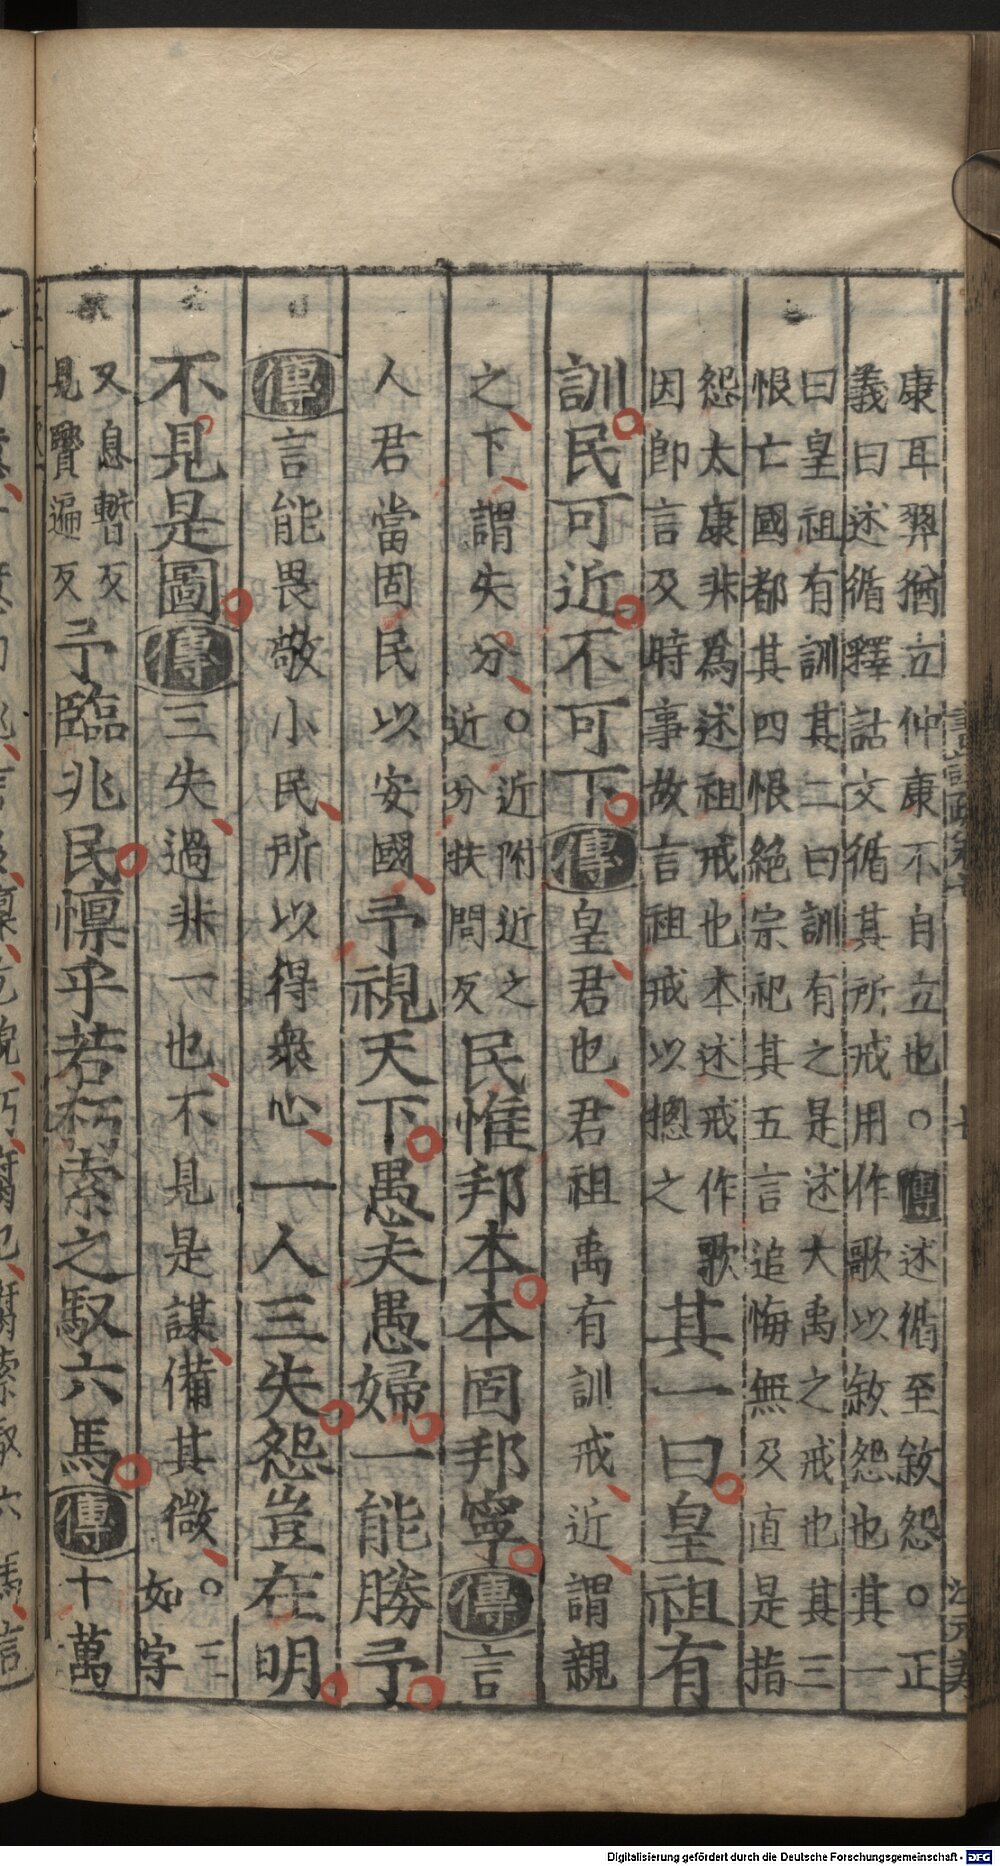 康耳羿猶立仲康不自立也○傳述循至敘怨○正
義曰述循釋詁文循其所戒用作歌以敘怨也其一
曰皇祖有訓其二曰訓有之是述大禹之戒也其三
恨亡國都其四恨絕宗祀其五言追悔無及直是指
怨太康非爲述祖戒也本述戒作歌
因即言及時事故言祖戒以摠之
其一曰皇祖有
訓民可近不可下傳皇君也君祖禹有訓戒近謂親
之下謂失分○近附近之
近分扶問反
民惟邦本本固邦寧傳言
人君當固民以安國予視天下愚夫愚婦一能勝予
傳言能畏敬小民所以得衆心一人三失怨豈在明
不見是圖傳三失過非一也不見是謀備其微○三
如字
又息暫反
見賢遍反
予臨兆民懍乎若朽索之馭六馬傳十萬
Digitalisierung gefördert durch die Deutsche Forschungsgemeinschaft - DFG